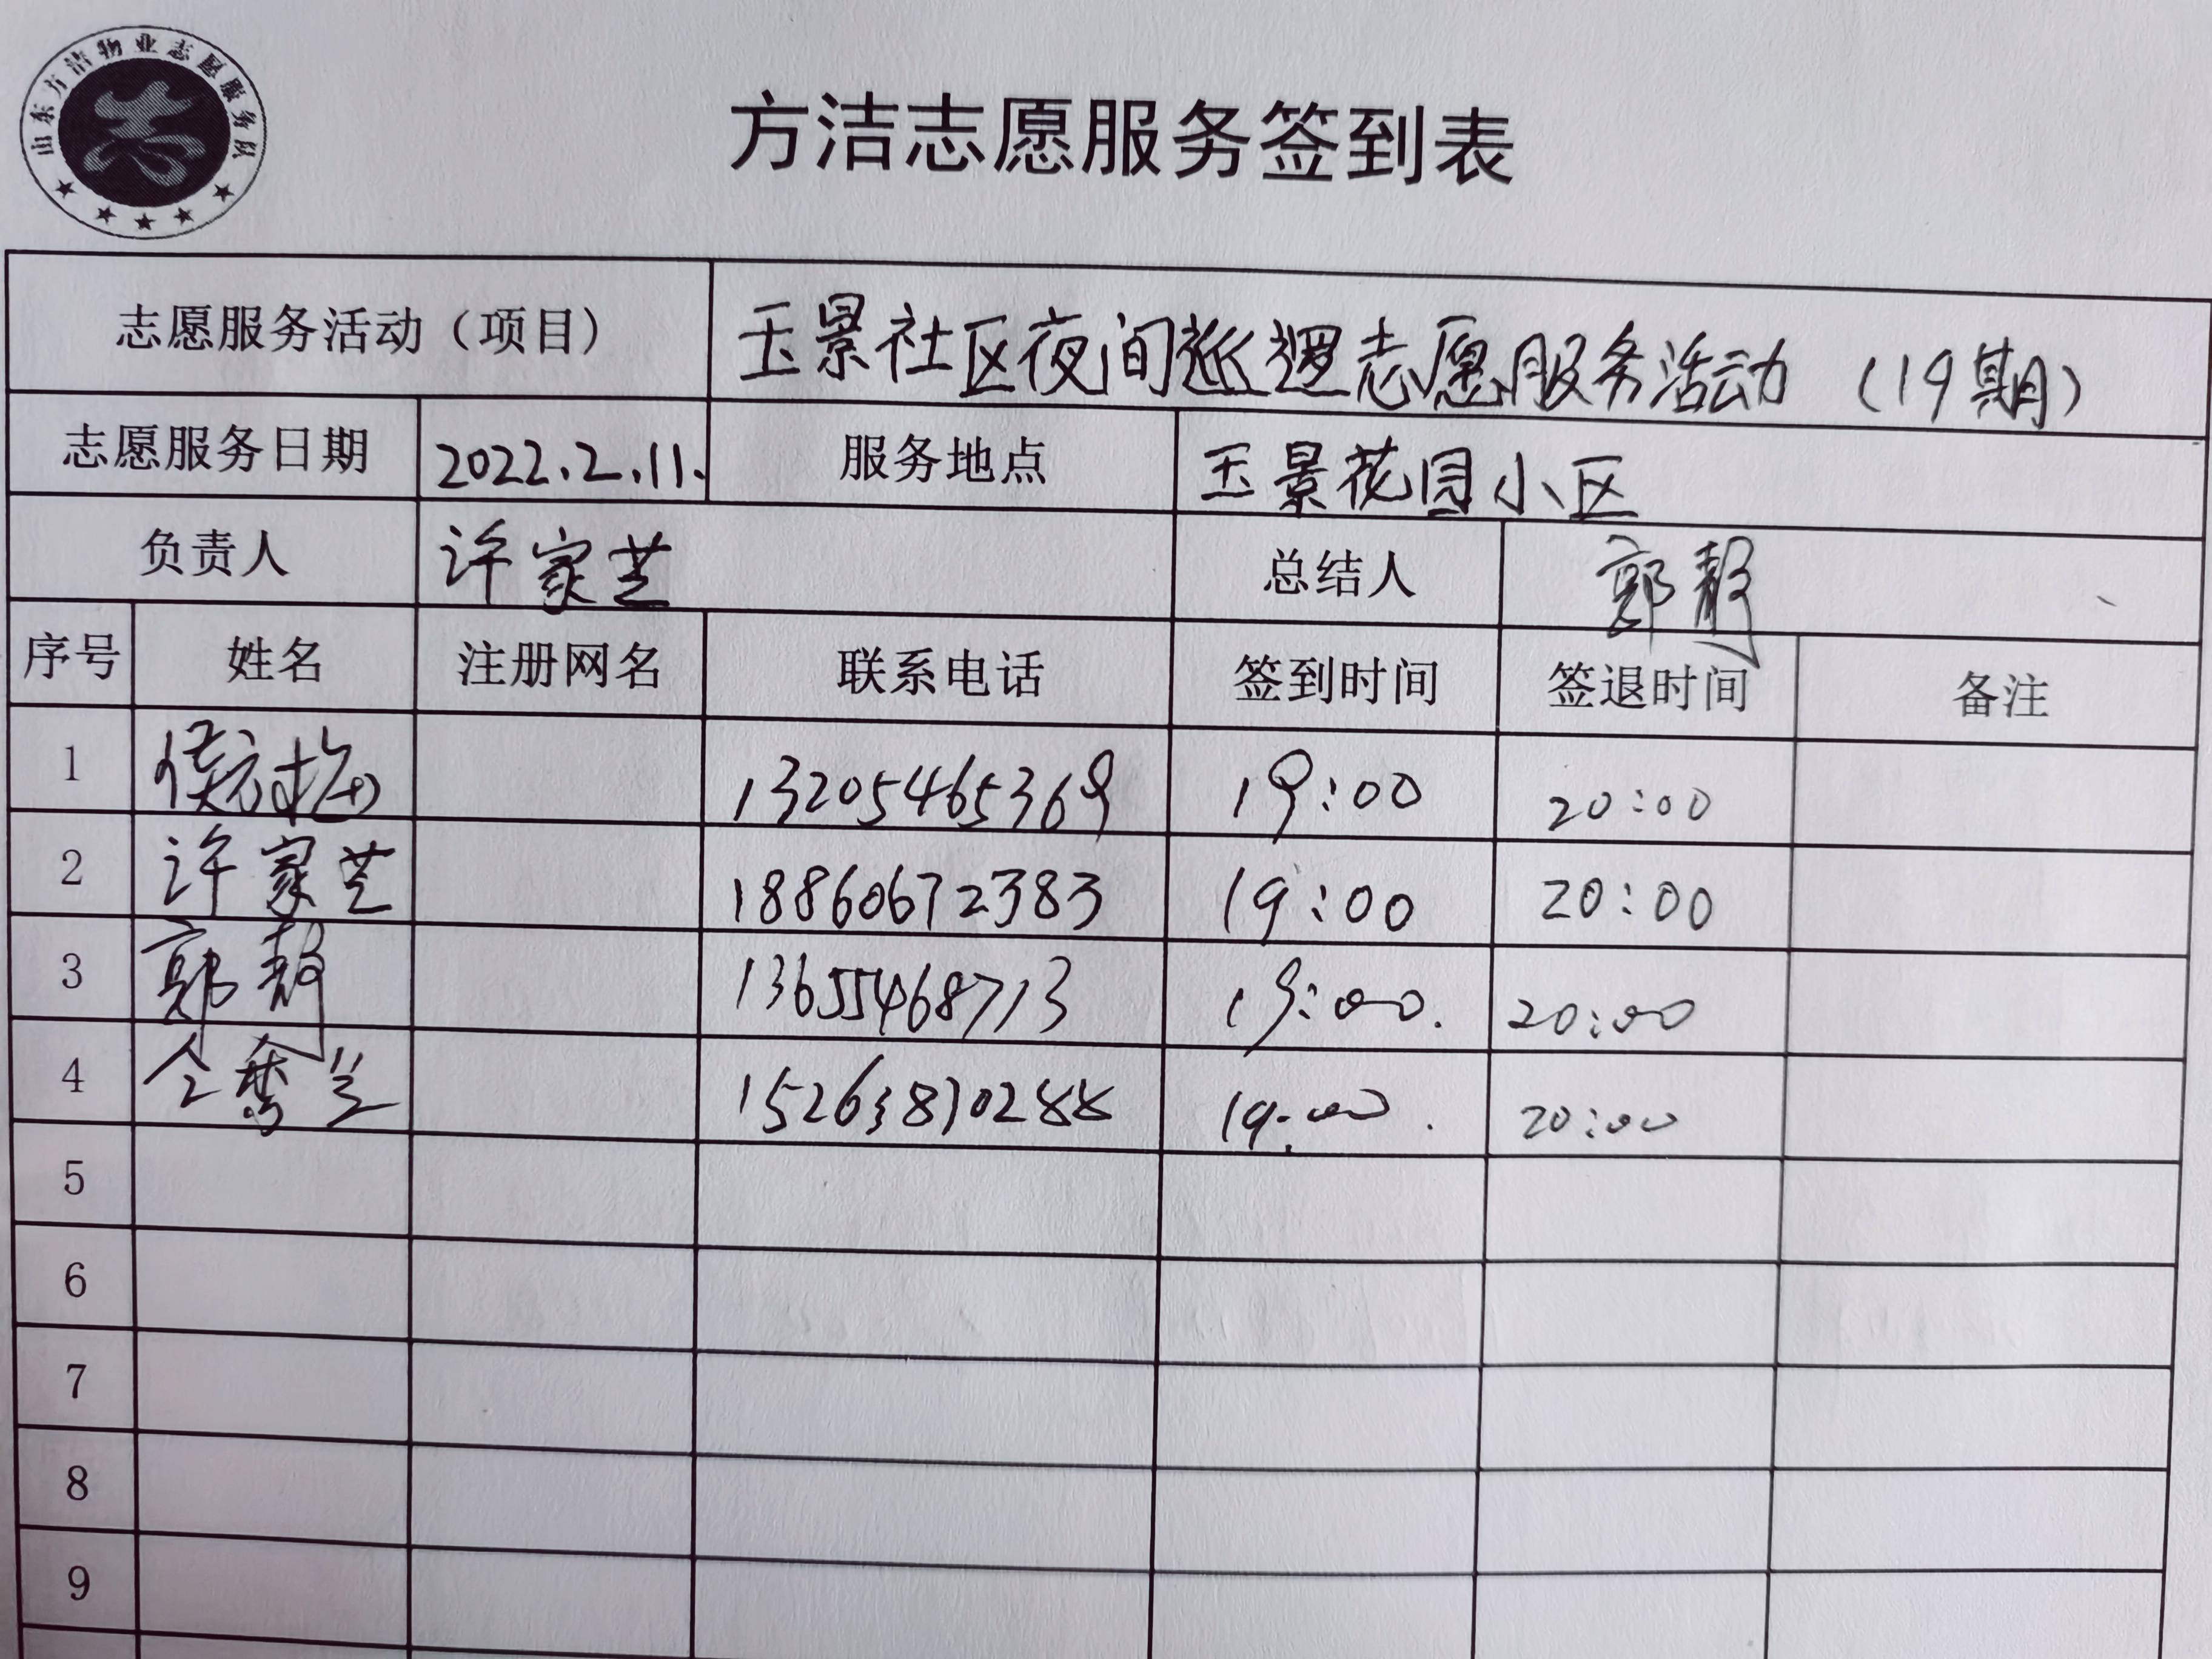 山东方洁物业志愿服务队
方洁志愿服务签到表
志愿服务活动（项目） 玉景社区夜间巡逻志愿服务活动（19期）
志愿服务日期 2022.2.11. 服务地点 玉景花园小区
负责人 许家芝 总结人 郭静
序号 姓名 注册网名 联系电话 签到时间 签退时间 备注
1 侯方梅 13205465369 19:00 20:00
2 许家芝 18860672383 19:00 20:00
3 郭静 13655468713 19:00. 20:00
4 仝秀兰 15263870288 19:00. 20:00
5
6
7
8
9